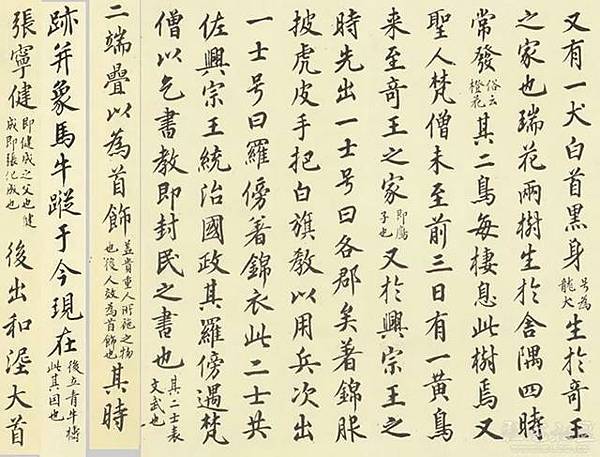 又有一犬白首黑身号為龍犬生於奇王
之家也瑞花兩樹生於舍隅四時
常發俗云橙花其二鳥每棲息此樹焉又
聖人梵僧未至前三日有一黃鳥
来至奇王之家即鷹子也又於興宗王之
時先出一士号曰各郡矣著錦服
披虎皮手把白旗教以用兵次出
一士号曰羅傍著錦衣此二士共
佐興宗王統治國政其羅傍遇梵
僧以乞書教即封民之書也其二士表文武也
二端疊以為首飾蓋貴重人所施之物也後人效為首飾也其時
跡并象馬牛蹤于今現在後立青牛禱此其因也
張寧健即健成之父也健成即張化成也後出和埿大首